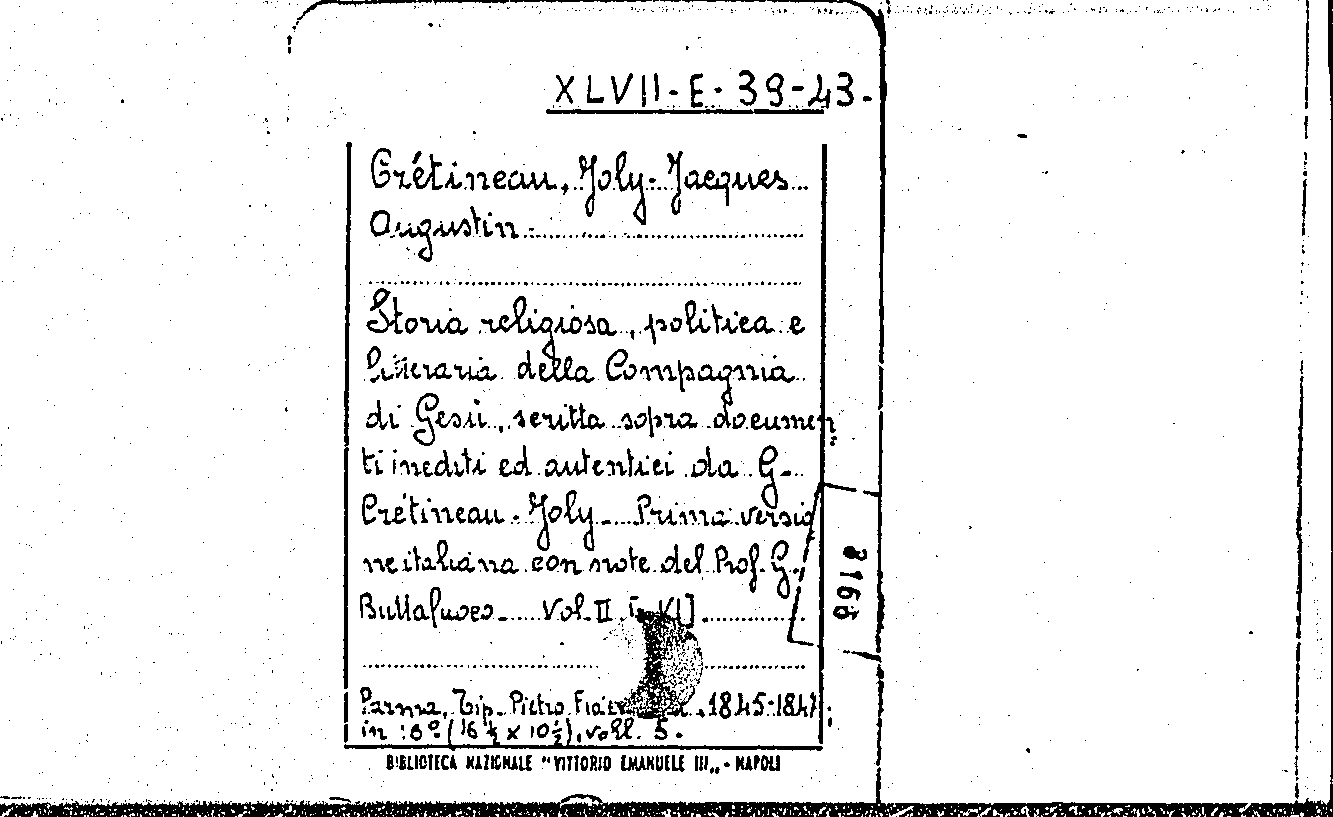 XLVII-E-39-43.
Crétineau, Joly-Jacques
Augustin.
Storia religiosa, politica e
litteraria della Compagnia
di Gesù, scritta sopra documen„
ti inediti ed autentici da G.
Crétineau-Joly. Prima versio
ne italiana con note del Prof. G.
Buttafuoco. Vol. II [a VI]
Parma, Tip. Pietro 1845-1847;
in 16° (16½ x 10½), voll. 5.
BIBLIOTECA NAZIONALE "VITTORIO EMANUELE III„ - NAPOLI